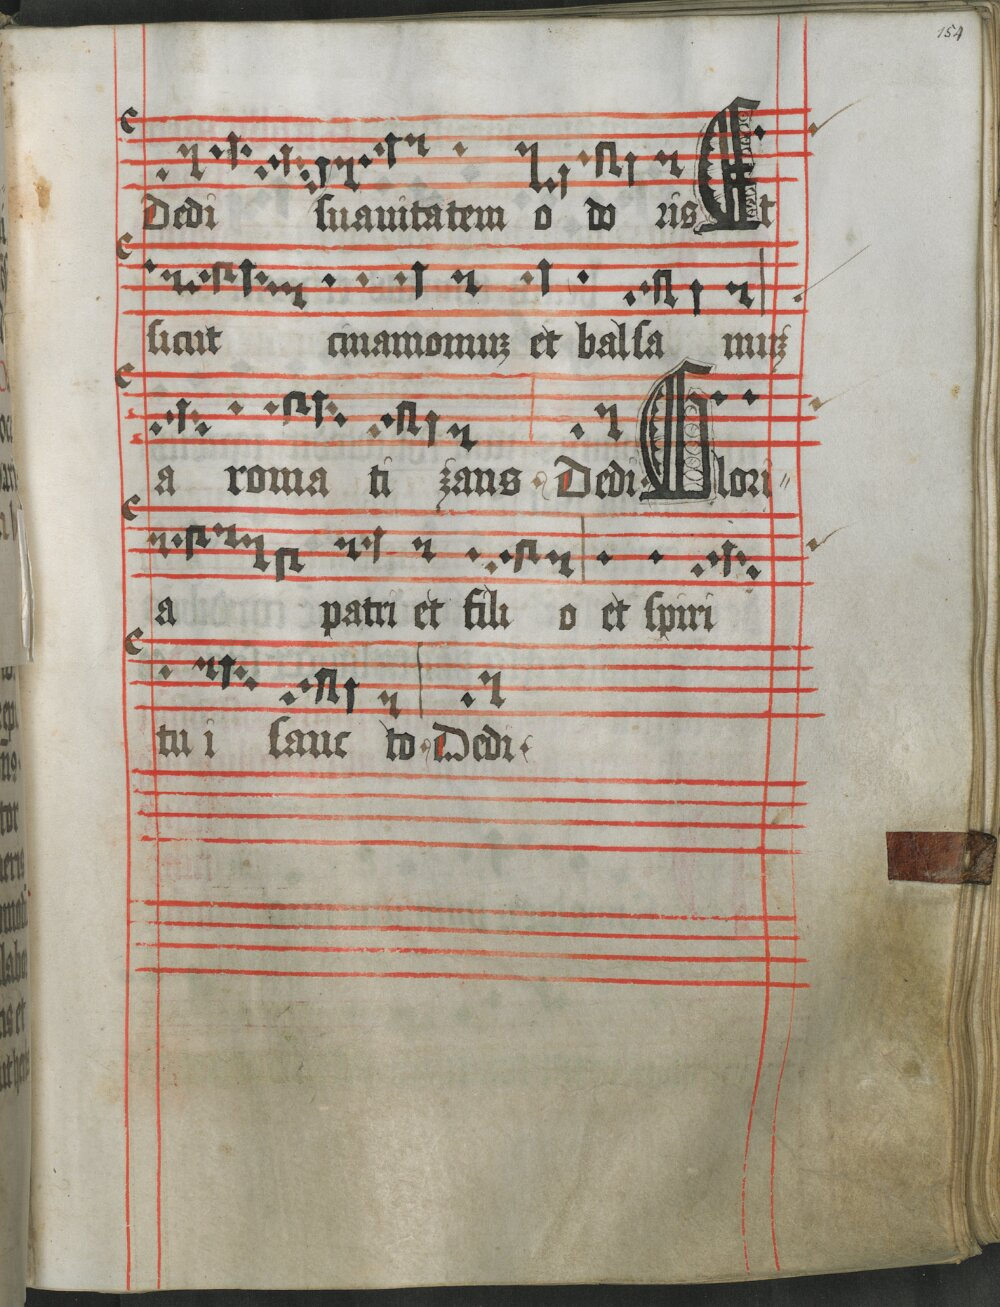 154
Dedi suauitatem o do ris Et
sicut cinamomuꝫ et balsa muꝫ
a roma ti zans Dedi Glori
a patri et fili o et spiri
tu i sanc to Dedi